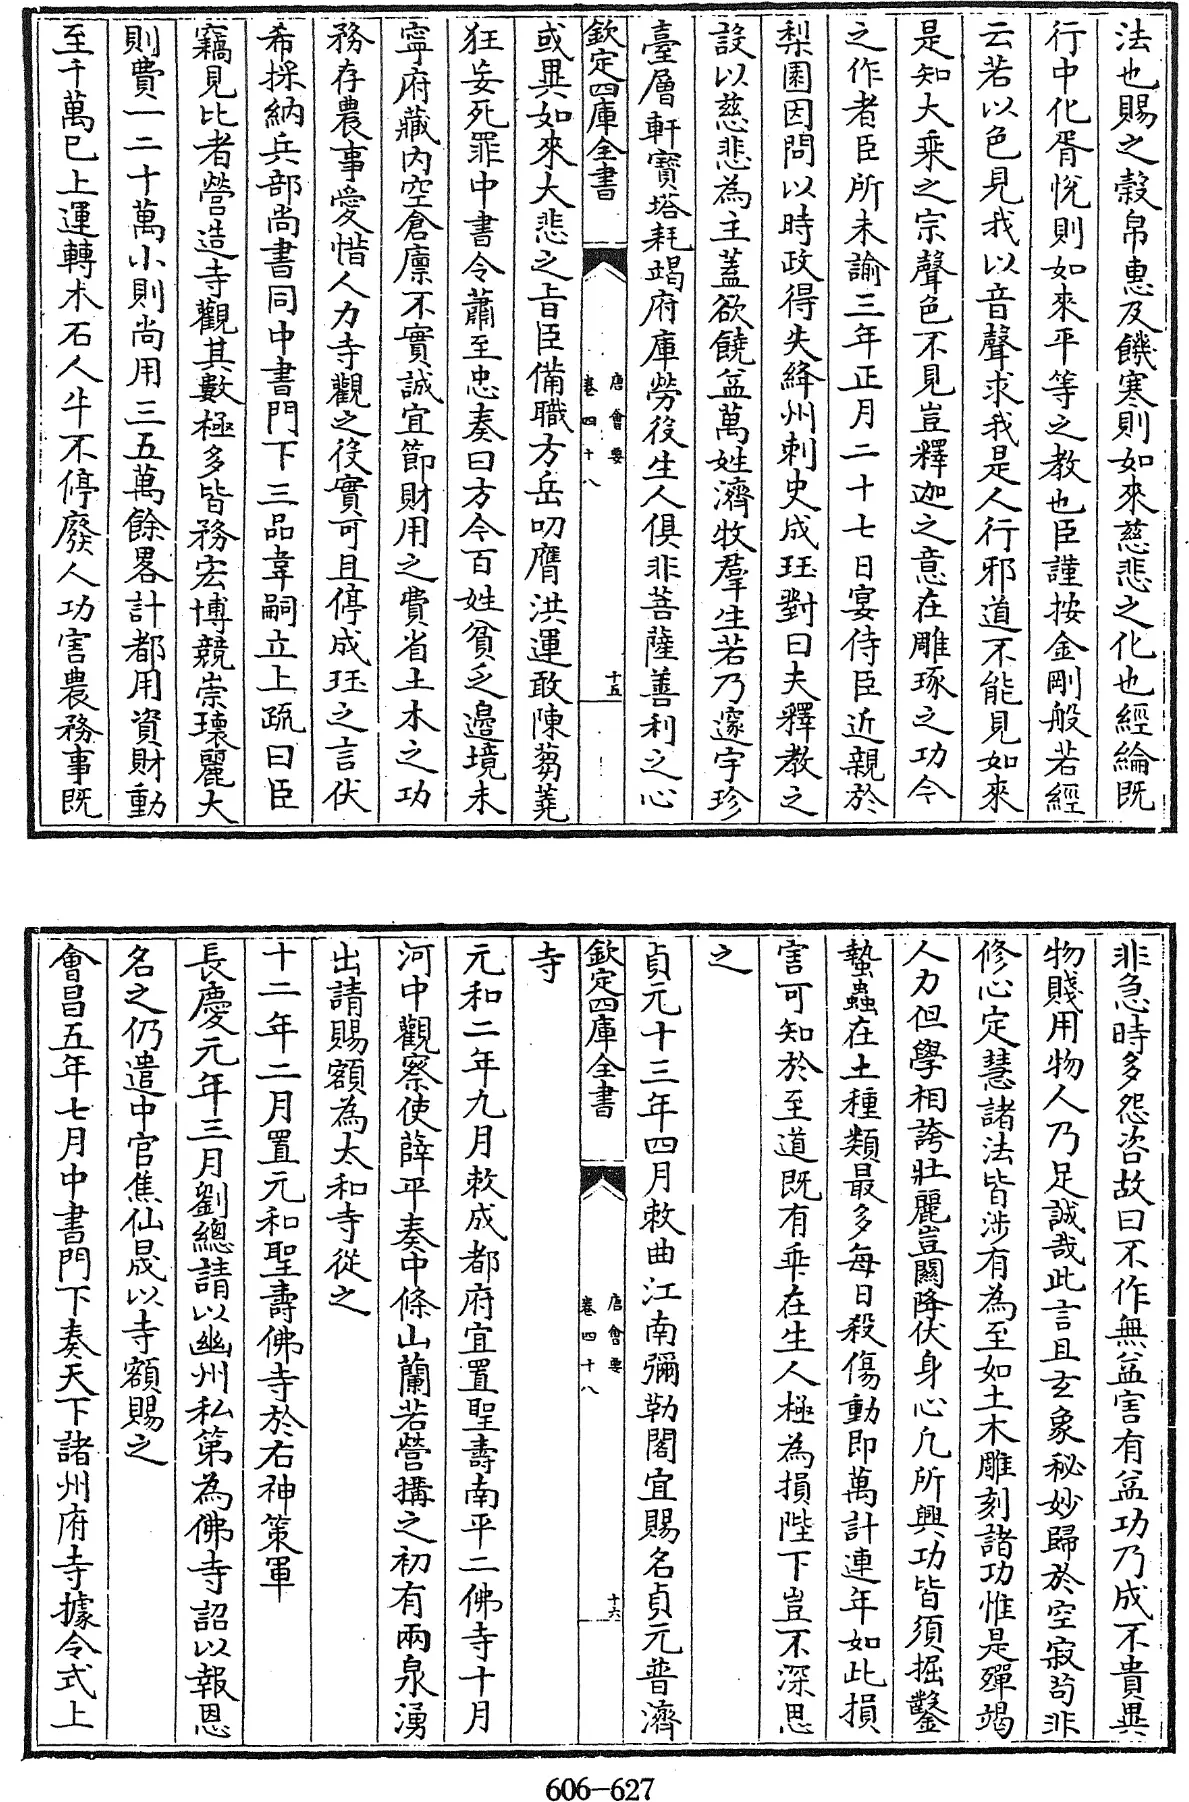 法也賜之穀帛惠及饑寒則如來慈悲之化也經綸既
行中化胥悅則如來平等之教也臣謹按金剛般若經
云若以色見我以音聲求我是人行邪道不能見如來
是知大乘之宗聲色不見豈釋迦之意在雕琢之功今
之作者臣所未諭三年正月二十七日宴侍臣近親於
梨園因問以時政得失絳州刺史成珪對曰夫釋教之
設以慈悲為主蓋欲饒益萬姓濟牧羣生若乃邃宇珍
臺層軒寶塔耗竭府庫勞役生人俱非菩薩善利之心
欽定四庫全書
唐會要
卷四十八
十五
或異如來大悲之旨臣備職方岳叨膺洪運敢陳芻蕘
狂妄死罪中書令蕭至忠奏曰方今百姓貧乏邊境未
寧府藏內空倉廩不實誠宜節財用之費省土木之功
務存農事愛惜人力寺觀之役實可且停成珪之言伏
希採納兵部尚書同中書門下三品韋嗣立上疏曰臣
竊見比者營造寺觀其數極多皆務宏博競崇瓌麗大
則費一二十萬小則尚用三五萬餘畧計都用資財動
至千萬已上運轉木石人牛不停廢人功害農務事既
非急時多怨咨故曰不作無益害有益功乃成不貴異
物賤用物人乃足誠哉此言且玄象秘妙歸於空寂苟非
修心定慧諸法皆涉有為至如土木雕刻諸功惟是殫竭
人力但學相誇壯麗豈關降伏身心凡所興功皆須掘鑿
蟄蟲在土種類最多每日殺傷動即萬計連年如此損
害可知於至道既有乖在生人極為損陛下豈不深思
之
貞元十三年四月敕曲江南彌勒閣宜賜名貞元普濟
欽定四庫全書
唐會要
卷四十八
十六
寺
元和二年九月敕成都府宜置聖壽南平二佛寺十月
河中觀察使薛平奏中條山蘭若營搆之初有兩泉湧
出請賜額為太和寺從之
十二年二月置元和聖壽佛寺於右神策軍
長慶元年三月劉總請以幽州私第為佛寺詔以報恩
名之仍遣中官焦仙晟以寺額賜之
會昌五年七月中書門下奏天下諸州府寺據令式上
606-627